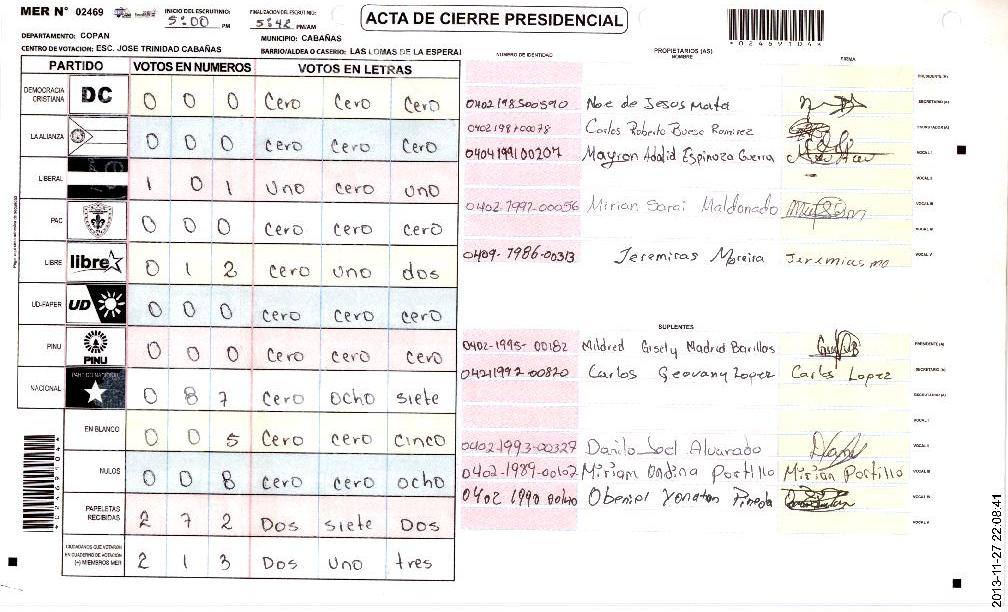 MER N° 02469
INICIO DEL ESCRUTINIO: 5:00 PM
FINALIZACION DEL ESCRUTINIO: 5:42 PM/AM
ACTA DE CIERRE PRESIDENCIAL
*02469104*
DEPARTAMENTO: COPAN
MUNICIPIO: CABAÑAS
CENTRO DE VOTACION: ESC. JOSE TRINIDAD CABAÑAS
BARRIO/ALDEA O CASERIO: LAS LOMAS DE LA ESPERAI
PARTIDO VOTOS EN NUMEROS VOTOS EN LETRAS
DEMOCRACIA CRISTIANA DC 0 0 0 Cero Cero Cero
LA ALIANZA 0 0 0 Cero Cero Cero
LIBERAL 1 0 1 Uno cero uno
PAC 0 0 0 Cero Cero Cero
LIBRE libre 0 1 2 Cero uno dos
UD-FAPER UD 0 0 0 Cero Cero Cero
PINU PINU 0 0 0 Cero Cero Cero
NACIONAL PARTIDO NACIONAL 0 8 7 Cero ocho siete
EN BLANCO 0 0 5 Cero Cero cinco
NULOS 0 0 8 Cero Cero ocho
PAPELETAS RECIBIDAS 2 7 2 Dos siete Dos
CIUDADANOS QUE VOTARON EN CUADERNO DE VOTACIÓN (+) MIEMBROS MER 2 1 3 Dos uno tres
NUMERO DE IDENTIDAD PROPIETARIOS (AS) NOMBRE FIRMA
PRESIDENTE (A)
0402198500590 Noe de Jesus Mata SECRETARIO (A)
Carlos Roberto Bueso Ramirez ESCRUTADOR (A)
0404199100207 Mayron Adalid Espinoza Guerra VOCAL I
VOCAL II
0402-1992-00056 Mirian Sarai Maldonado VOCAL III
VOCAL IV
0409-1986-00313 Jeremiras Moreira Jeremias mo VOCAL V
SUPLENTES
0402-1995-00182 Mildred Gisely Madrid Barillos PRESIDENTE (A)
04211992-00820 Carlos Geovany Lopez Carlos Lopez SECRETARIO (A)
ESCRUTADOR (A)
VOCAL I
0402-1993-00327 Danilo Joel Alvarado VOCAL II
0402-1989-00102 Miriam Ondina Portillo Mirian Portillo VOCAL III
0402 1990 Yonatan Pineda VOCAL IV
VOCAL V
2013-11-27 22:08:41